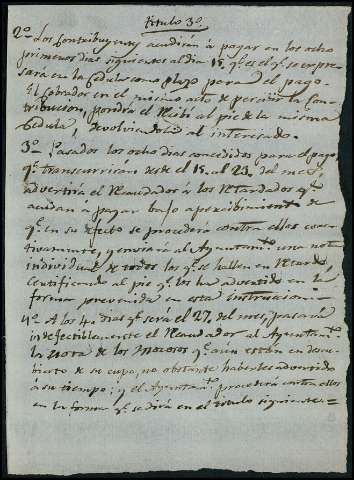 titulo 3º.
2º Los Contribuyentes acudirán á pagar en los ocho
primeros dias siguientes al dia 15, qe. es el qe. se expre-
sará en la Cedula como plazo para el pago.
El Cobrador en el mismo acto de percibir la Con-
tribucion, pondrá el Recibi al pie de la misma
Cedula, devolviendola al interesado.
3º Pasados los ocho dias concedidos para el pago
qe. transcurrirán desde el 15, al 23, del mes,
advertirá el Recaudador á los Retardados qe.
acudan á pagar bajo apercibimiento de
qe. en su defecto se procederá contra ellos execu-
tivamente, y enviará al Ayuntamto. una nota
individual de todos los qe. se hallen en Retardo,
Certificando al pie qe. los ha advertido en la
forma prevenida en esta instruccion.
4º A los 4 dias qe. será el 27, del mes, pasará
indefectiblemente el Recaudador al Ayuntamto.
la Nota de los Morosos qe. aun estan en descu-
bierto de su cupo, no obstante haberles advertido
á su tiempo; y el Ayuntamto. procederá contra ellos
en la forma qe. se dirá en el titulo siguiente.=